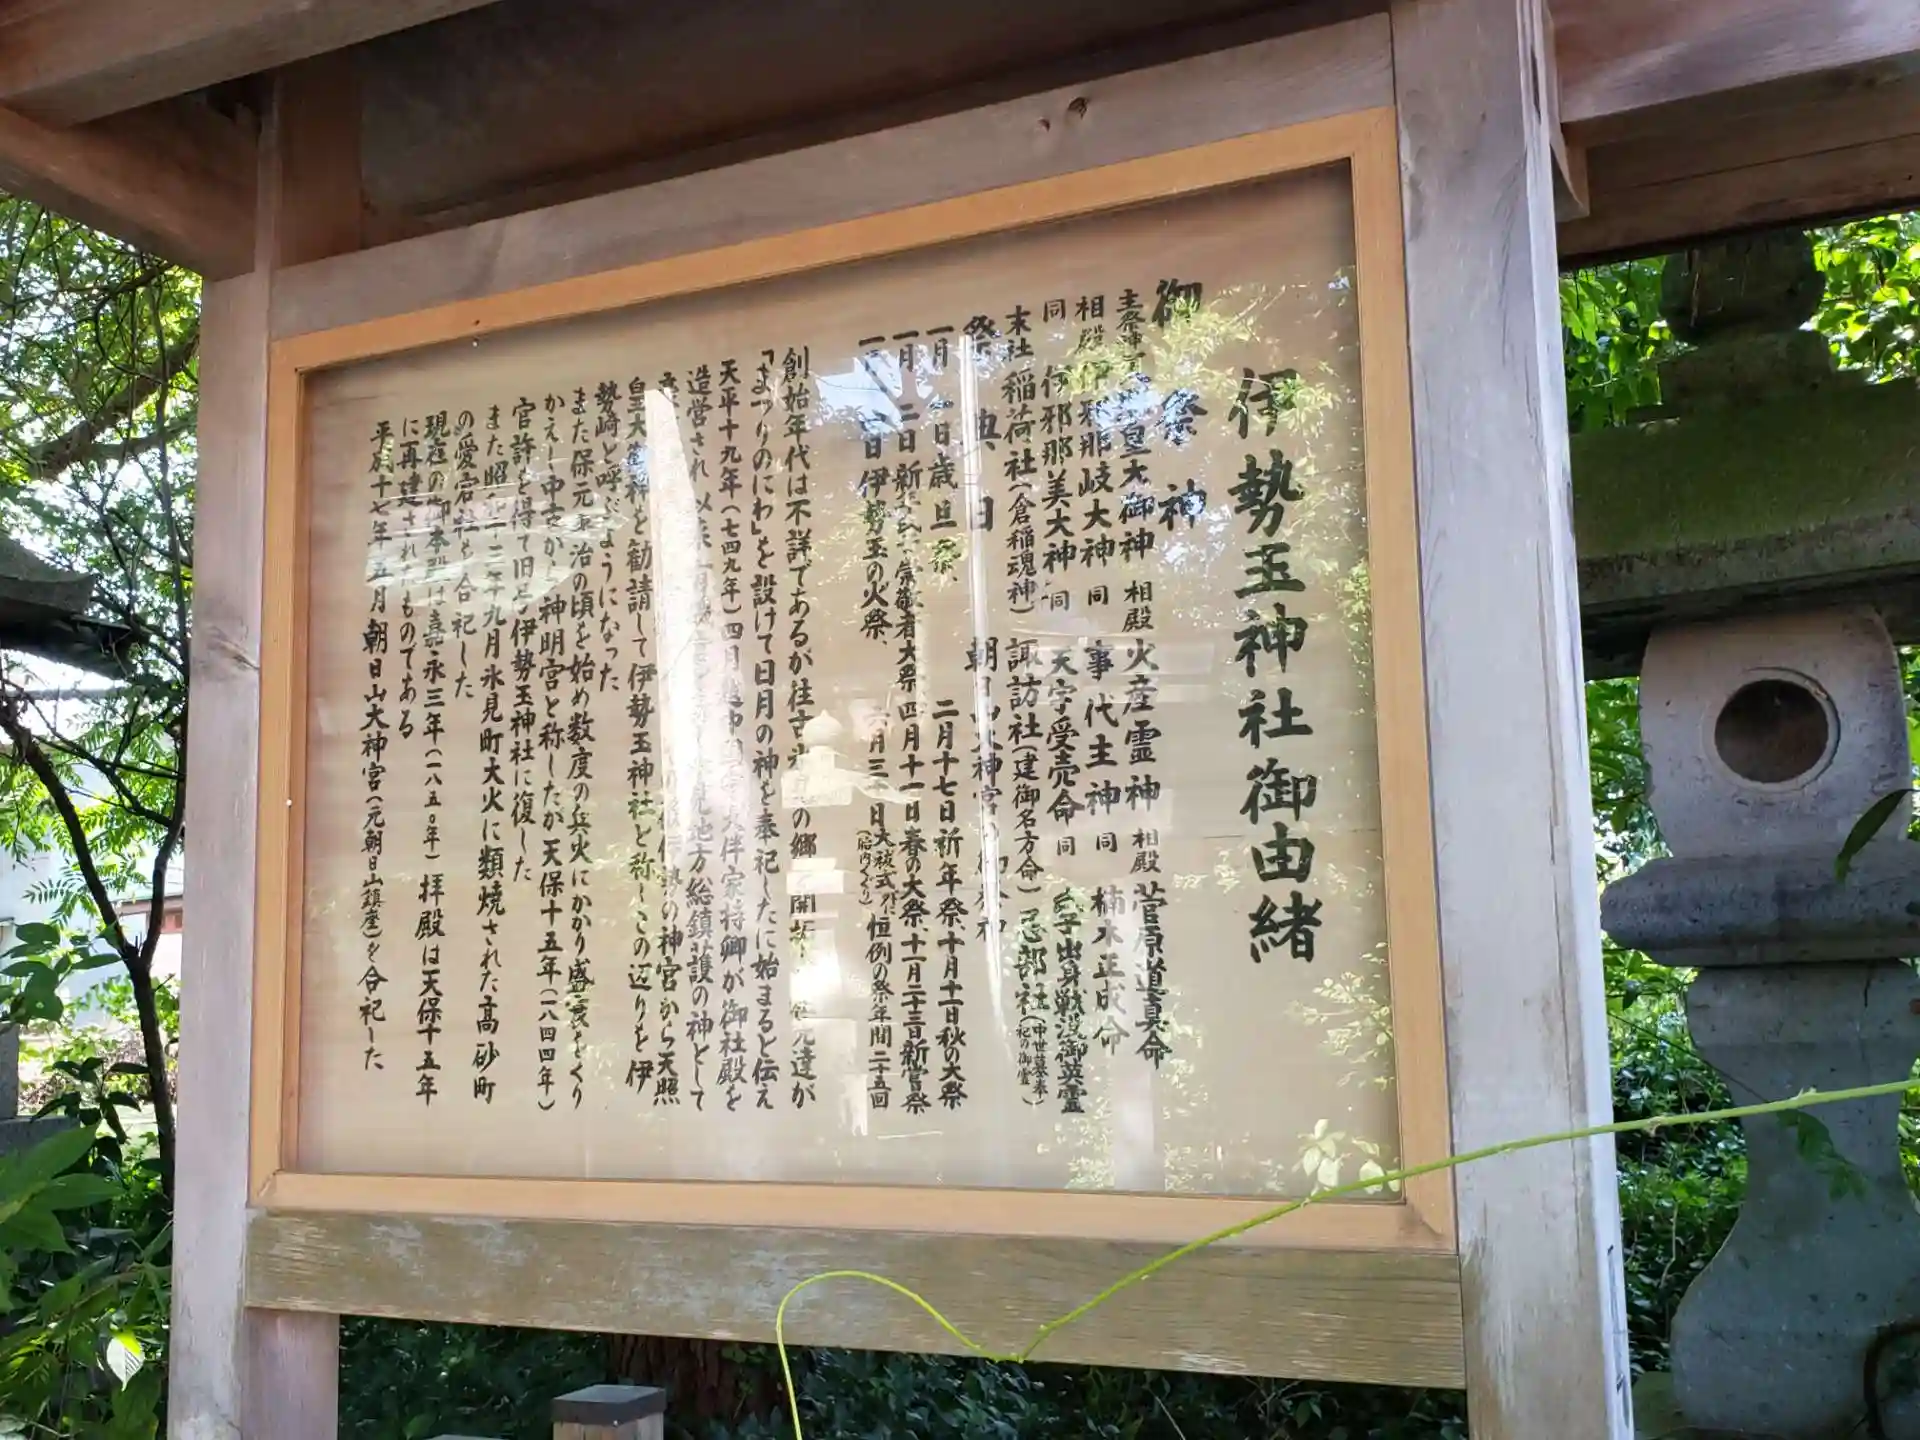 伊勢玉神社御由緒
御祭神
主祭神 皇大御神 相殿 火産霊神 相殿 菅原道真命
相殿 伊邪那岐大神 同 事代主神 同 楠木正成命
同 伊邪那美大神 同 天宇受売命 同 氏子出身戦没御英霊
末社 稲荷社(倉稲魂神) 諏訪社(建御名方命) 忌部社
祭典日 朝日山大神宮 御祭神
一月一日歳旦祭、 二月十七日祈年祭、十月十一日秋の大祭
一月二日新年 崇敬者大祭 四月十一日春の大祭、十一月二十三日新嘗祭
日伊勢玉の火祭、 六月三十日大祓式 (胎内くぐり) 恒例の祭年間二十五回
創始年代は不詳であるが往古 の郷を開拓し 達が
「まつりのにわ」を設けて日月の神を奉祀したに始まると伝え
天平十九年(七四九年)四月越中国守大伴家持卿が御社殿を
造営され 以来 見地方総鎮護の神として
伊勢の神宮から天照
皇大御神を勧請して伊勢玉神社と称しこの辺りを伊
勢崎と呼ぶようになった
また保元平治の頃を始め数度の兵火にかかり盛衰をくり
かえし中古から神明宮と称したが天保十五年(一八四四年)
官許を得て旧号伊勢玉神社に復した
また昭和十三年九月氷見町大火に類焼された高砂町
の愛宕社を合祀した
現在の御本殿は嘉永三年(一八五〇年)拝殿は天保十五年
に再建されたものである
平成十七年五月朝日山大神宮(元朝日山鎮座)を合祀した